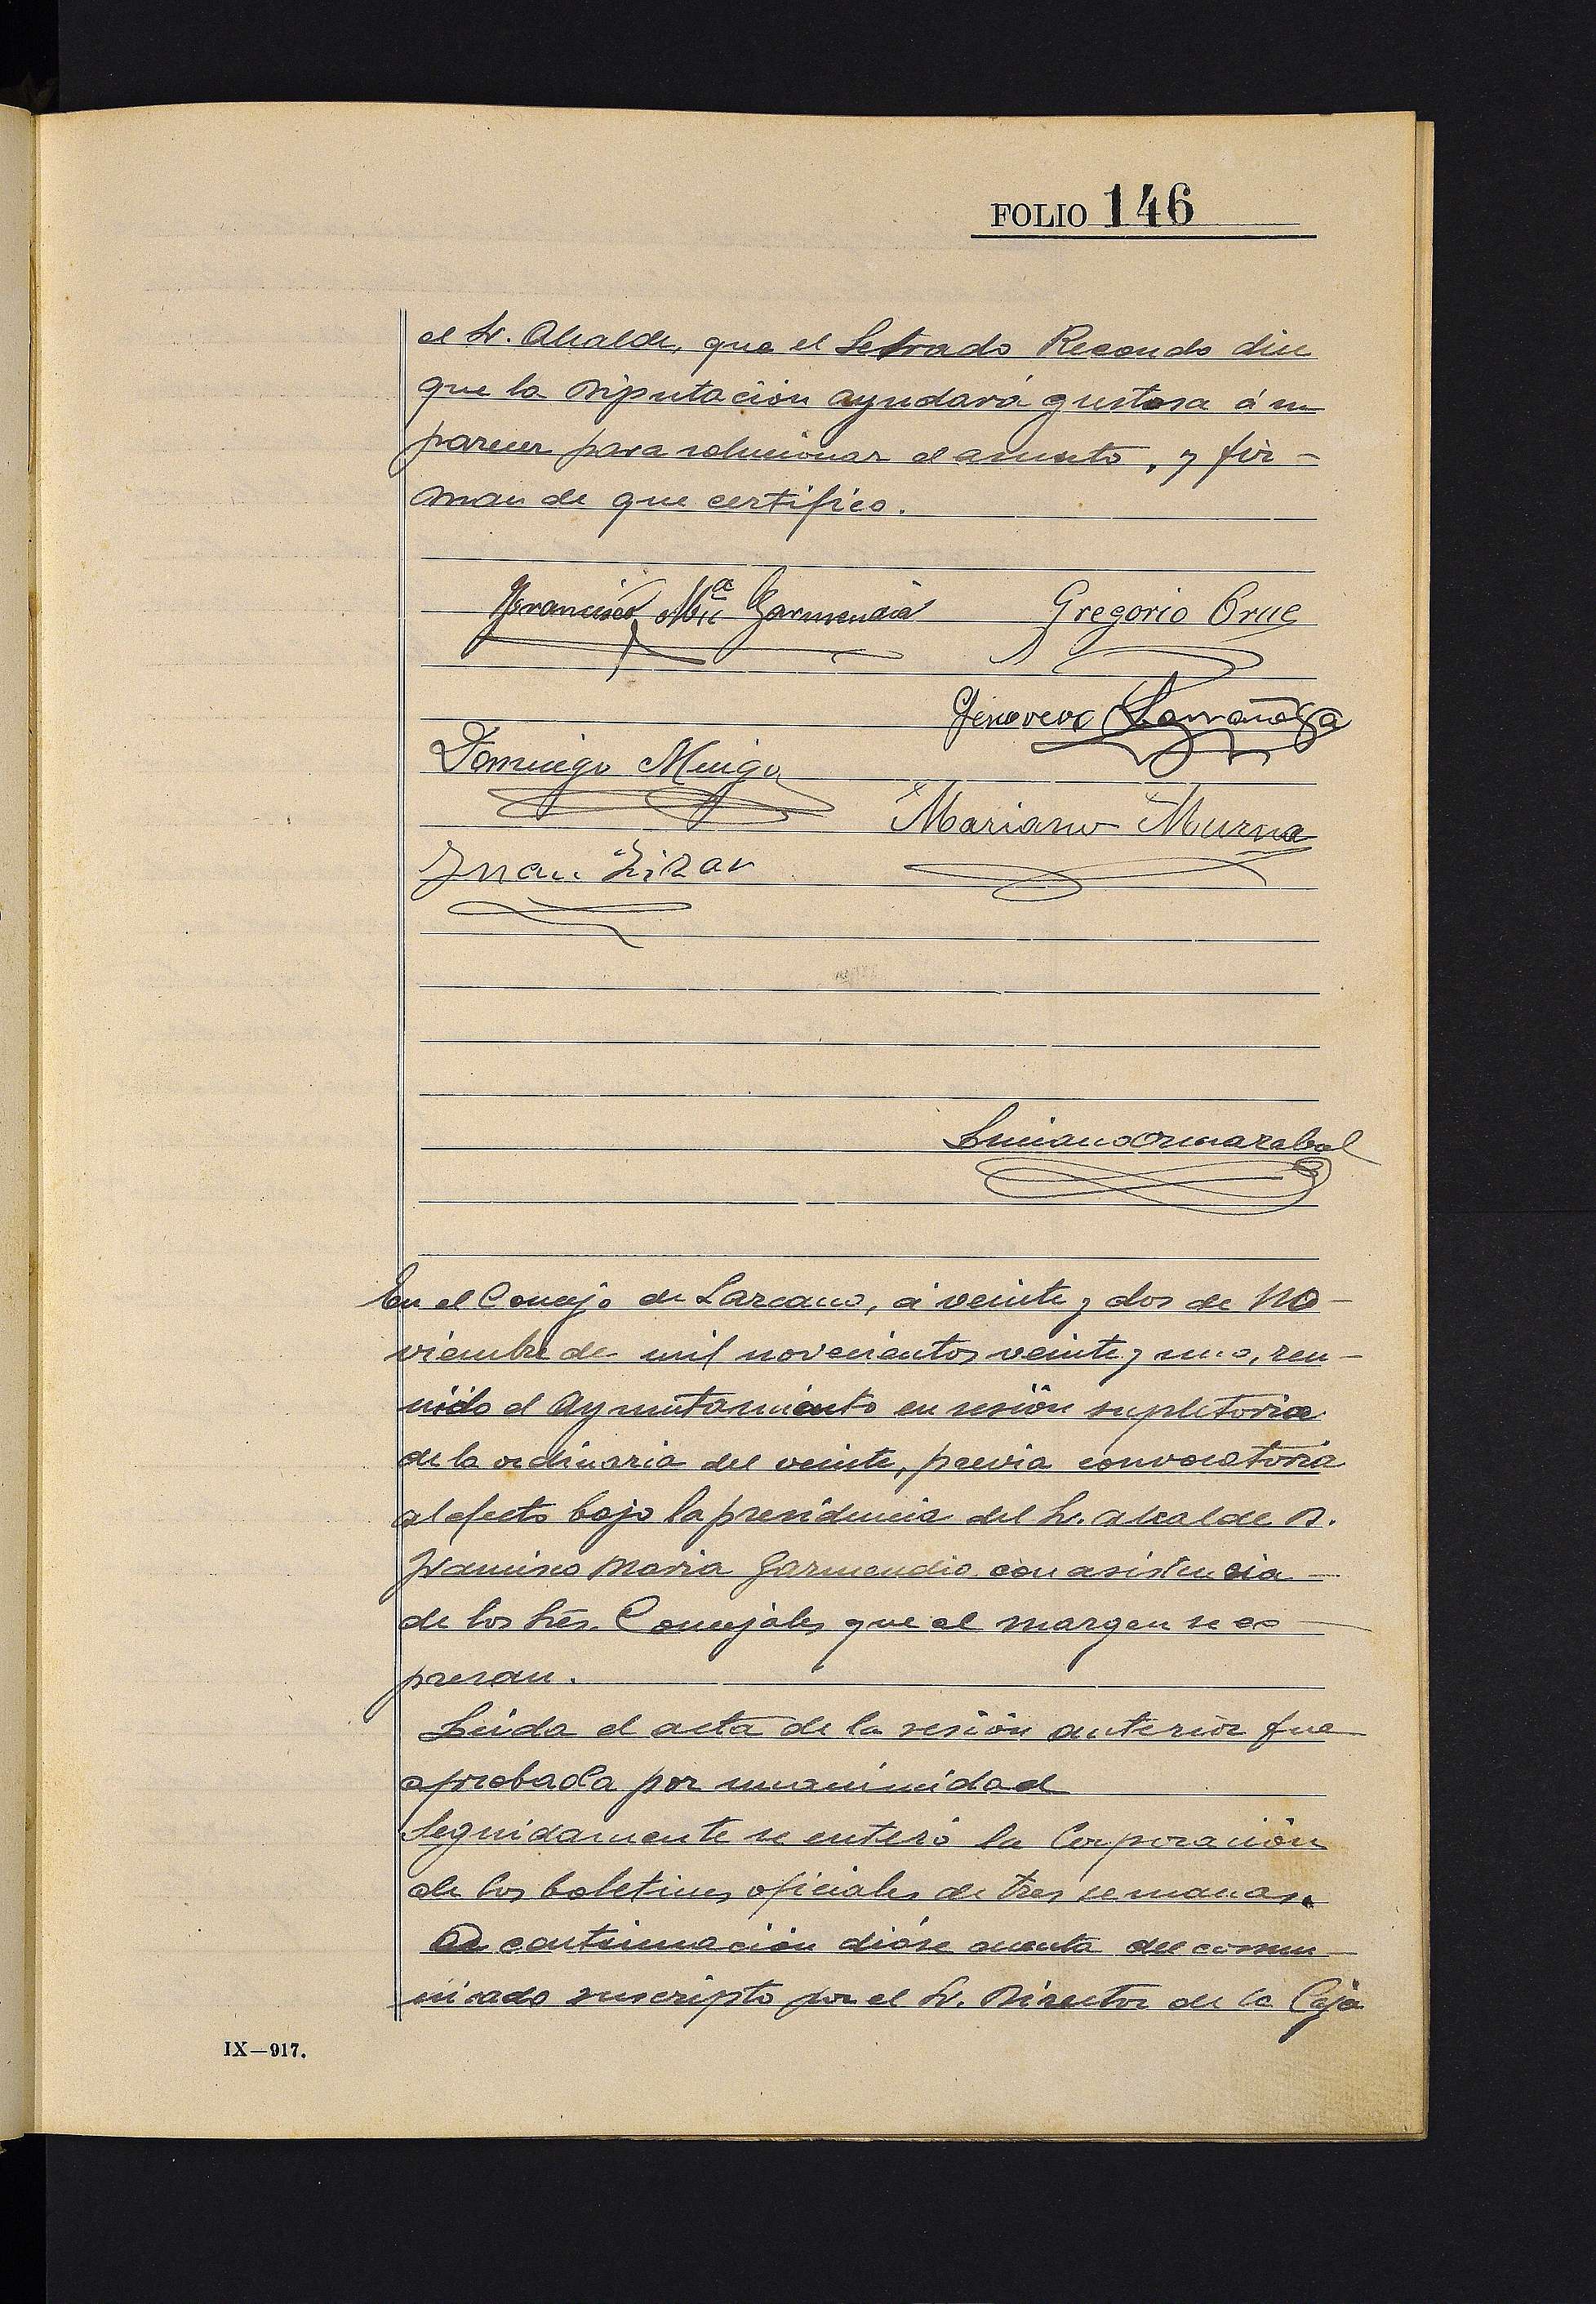 FOLIO 146
el Sr. Alcalde, que el Letrado Recondo dice
que la Diputación ayudará gustosa á su
parecer para solucionar el asunto, y fir-
man de que certifico.
Francisco Mª Garmendia Gregorio Orue
Genoveva Larrañaga
Domingo Mugi
Mariano Murua
Juan
Luciano Ormazabal
En el Concejo de Lazcano, á veinte y dos de No-
viembre de mil novecientos veinte y uno, reu-
nido el Ayuntamiento en sesión supletoria
de la ordinaria del veinte, previa convocatoria
al efecto bajo la presidencia del Sr. alcalde D.
Francisco Maria Garmendia con asistencia
de los Srés. Concejales que al margen se ex
presan.
Leida el acta de la sesión anterior fue
aprobada por unanimidad
Seguidamente se enteró la Corporación
de los boletines oficiales de tres semanas.
A continuación dióse cuenta del comu-
nicado suscripto por el Sr. Director de la Caja
IX—917.